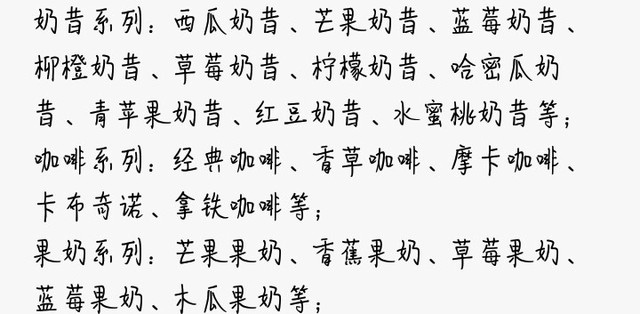 奶昔系列：西瓜奶昔、芒果奶昔、蓝莓奶昔、
柳橙奶昔、草莓奶昔、柠檬奶昔、哈密瓜奶
昔、青苹果奶昔、红豆奶昔、水蜜桃奶昔等；
咖啡系列：经典咖啡、香草咖啡、摩卡咖啡、
卡布奇诺、拿铁咖啡等；
果奶系列：芒果果奶、香蕉果奶、草莓果奶、
蓝莓果奶、木瓜果奶等；